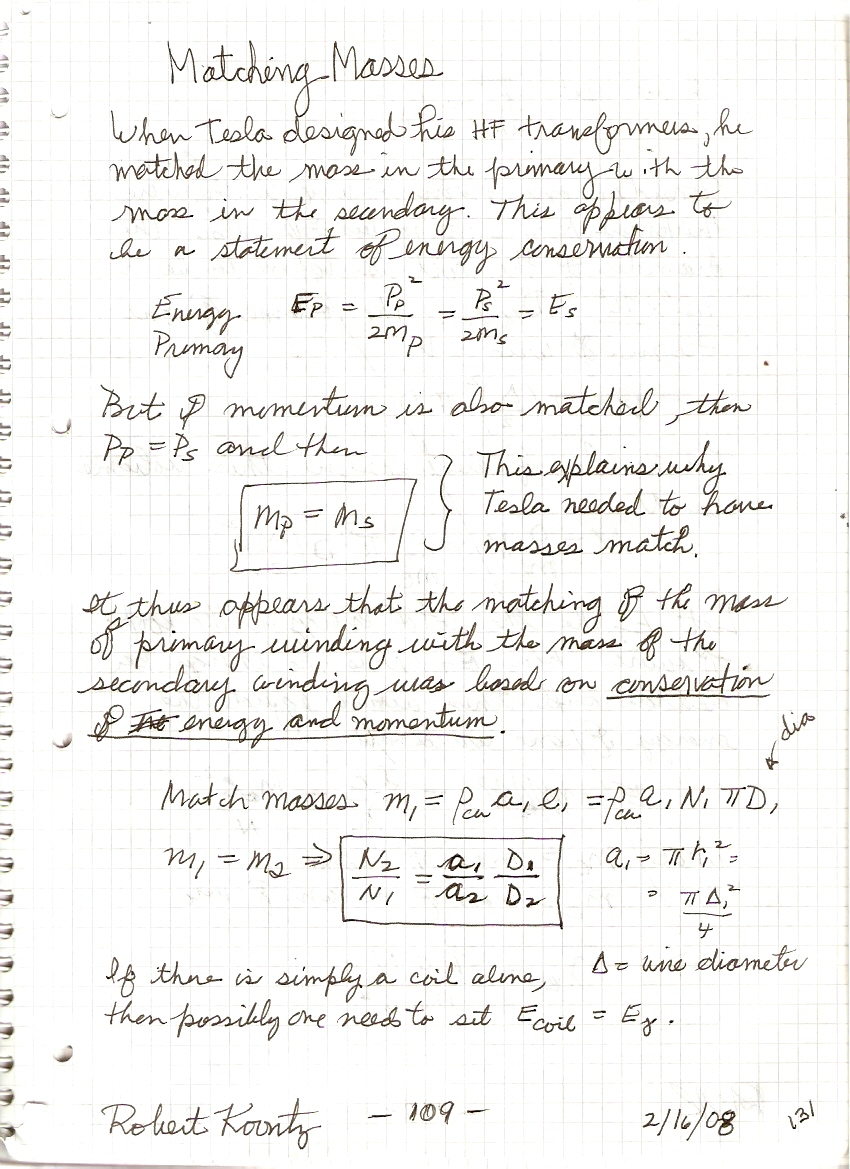 Matching Masses
When Tesla designed his HF transformers, he
matched the mass in the primary with the
mass in the secondary. This appears to
be a statement of energy conservation.
Energy Primary E_P = P_P^2 / 2m_p = P_s^2 / 2m_s = E_s
But if momentum is also matched, then
P_P = P_s and then
m_p = m_s } This explains why
Tesla needed to have
masses match.
It thus appears that the matching of the mass
of primary winding with the mass of the
secondary winding was based on conservation
of energy and momentum.
dia
Match masses m_1 = ρ_cu a_1 l_1 = ρ_cu a_1 N_1 π D_1
m_1 = m_2 ⇒ N_2/N_1 = a_1/a_2 D_1/D_2 a_1 = π r_1^2 =
= π Δ_1^2 / 4
If there is simply a coil alone, Δ = wire diameter
then possibly one needs to set E_coil = E_γ.
Robert Koontz - 109 - 2/16/08 131